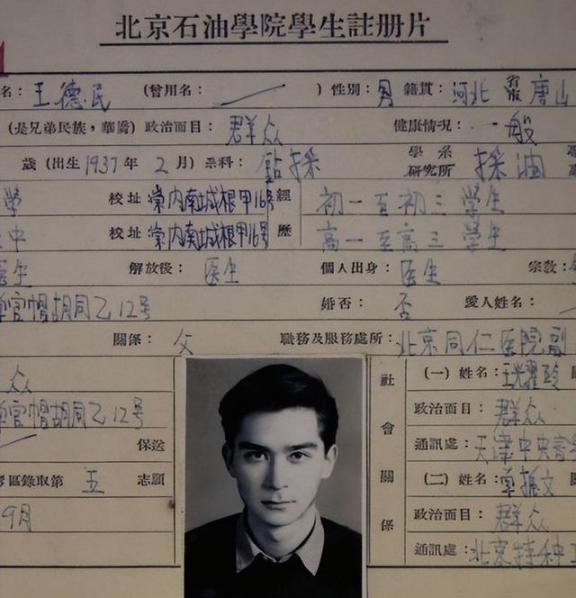 北京石油學院學生註册片
名：王德民 （曾用名： ） 性別：男 籍貫：河北 省市 唐山
（是兄弟民族，華僑）政治面目：群众 健康情况：一般
歲（出生1937年2月）系科：鈷採 學系研究所 採油
學 校址 崇内南城根甲16号 經 初一至初三 学生
中 校址 崇内南城根甲16号 歷 高一至高三 学生
医生 解放後：医生 個人出身：医生 宗教：
官帽胡同乙12号 婚否：否 愛人姓名：
關係：父 職務及服務處所：北京同仁医院副
众 社會關係 （一）姓名：王光
官帽胡同乙12号 政治面目：群众
保送 通訊處：天津中央
區錄取第五志願 （二）姓名：文
9月 政治面目：群众
通訊處：北京特种工